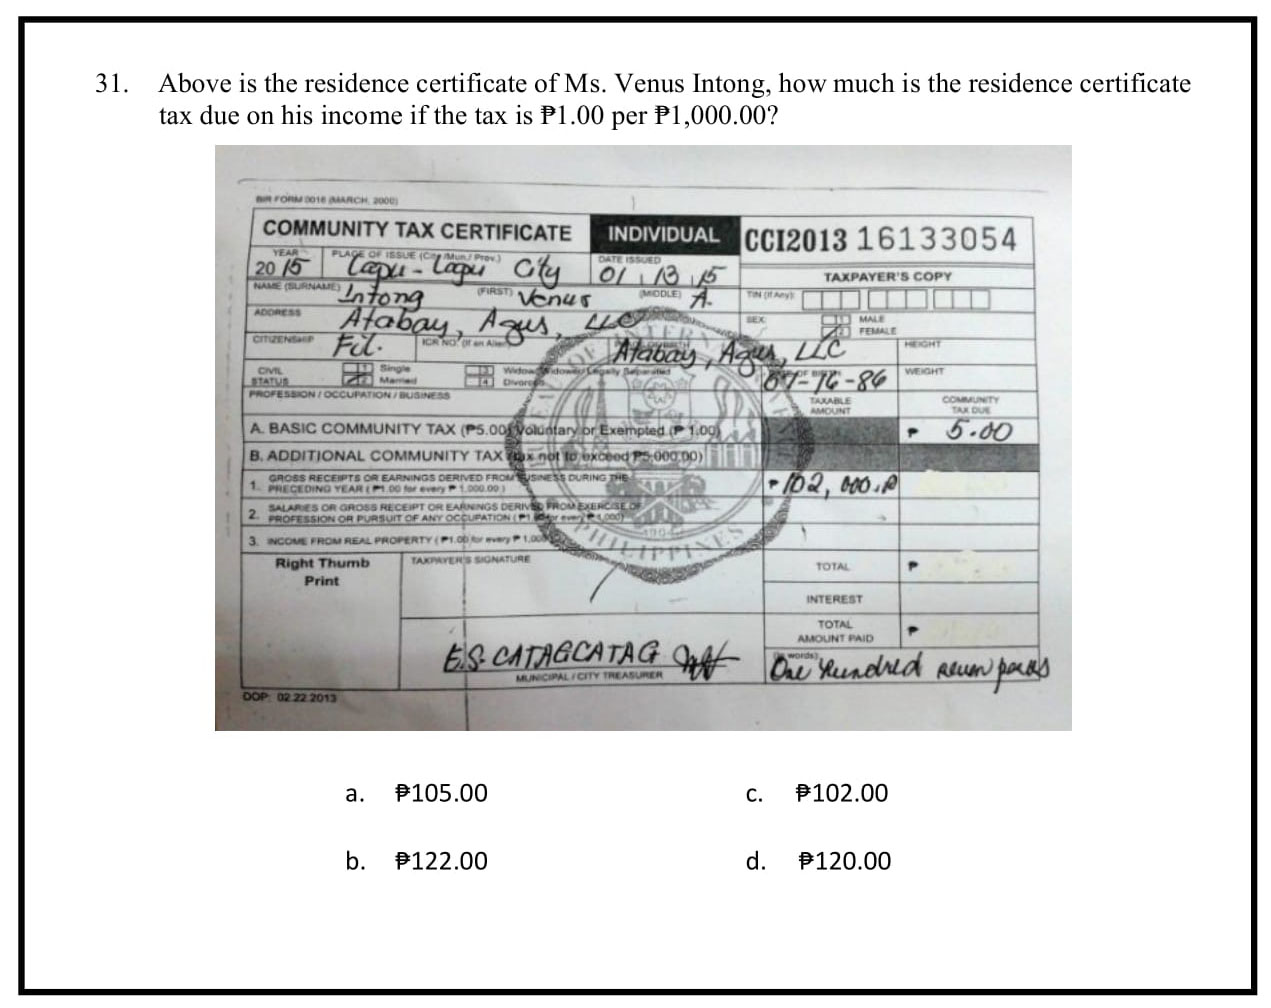 31. Above is the residence certificate of Ms. Venus Intong, how much is the residence certificate
tax due on his income if the tax is ₱1.00 per ₱1,000.00?
BIR FORM 0016 (MARCH, 2000)
COMMUNITY TAX CERTIFICATE INDIVIDUAL CCI2013 16133054
YEAR PLACE OF ISSUE (City /Mun./ Prov.) DATE ISSUED TAXPAYER'S COPY
2015 Lapu-Lapu City 01 13 15
NAME (SURNAME) (FIRST) (MIDDLE) TIN (If Any):
Intong Venus A.
ADDRESS SEX MALE
Atabay, Agus, LLC FEMALE
CITIZENSHIP ICR NO. (If an Alien) HEIGHT
Fil. Atabay, Agus, LLC
CIVIL STATUS 1 Single 3 Widow/Widower/Legally Separated WEIGHT
2 Married 4 Divorced 07-16-86
PROFESSION / OCCUPATION / BUSINESS TAXABLE AMOUNT COMMUNITY TAX DUE
A. BASIC COMMUNITY TAX (₱5.00) Voluntary or Exempted (₱1.00) ₱ 5.00
B. ADDITIONAL COMMUNITY TAX (tax not to exceed ₱5,000.00)
1. GROSS RECEIPTS OR EARNINGS DERIVED FROM BUSINESS DURING THE
PRECEDING YEAR (₱1.00 for every ₱1,000.00) ₱ 102,000.
2. SALARIES OR GROSS RECEIPT OR EARNINGS DERIVED FROM EXERCISE OF
PROFESSION OR PURSUIT OF ANY OCCUPATION (₱1.00 for every ₱1,000)
3. INCOME FROM REAL PROPERTY (₱1.00 for every ₱1,000)
PHILIPPINES
Right Thumb
Print
TAXPAYER'S SIGNATURE
TOTAL ₱
INTEREST
TOTAL
AMOUNT PAID ₱
(in words)
One hundred seven pesos
E.S. CATAGCATAG
MUNICIPAL / CITY TREASURER
DOP: 02.22.2013
a. ₱105.00 c. ₱102.00
b. ₱122.00 d. ₱120.00